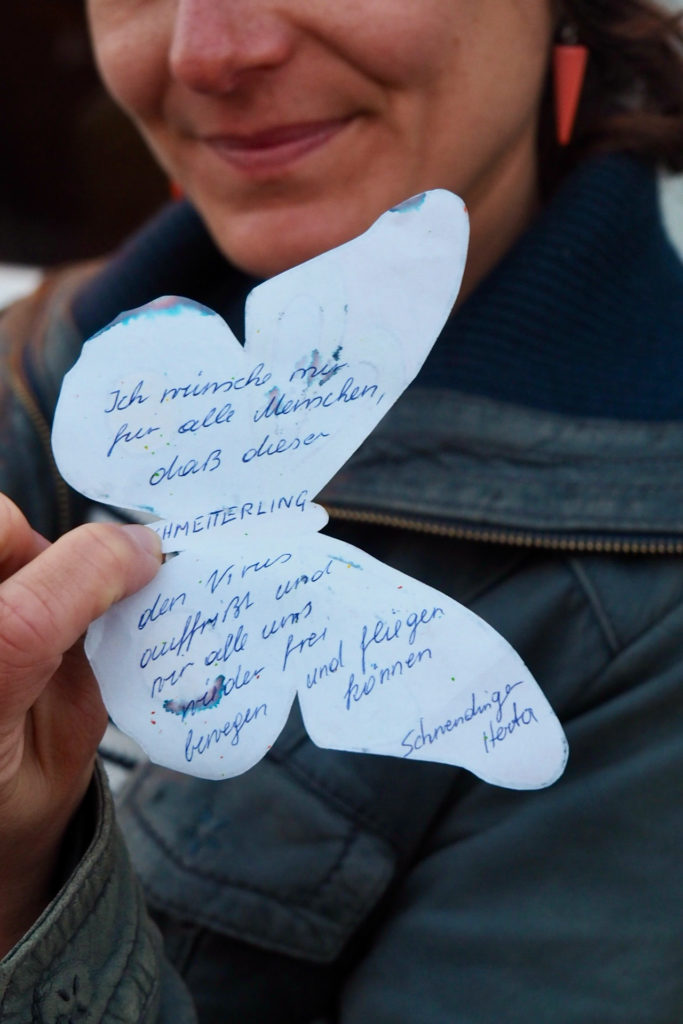 Ich wünsche mir
für alle Menschen,
daß dieser
HMETTERLING
den Virus
auffrißt und
wir alle uns
wieder frei
bewegen
und fliegen
können
Schwendinger
Herta